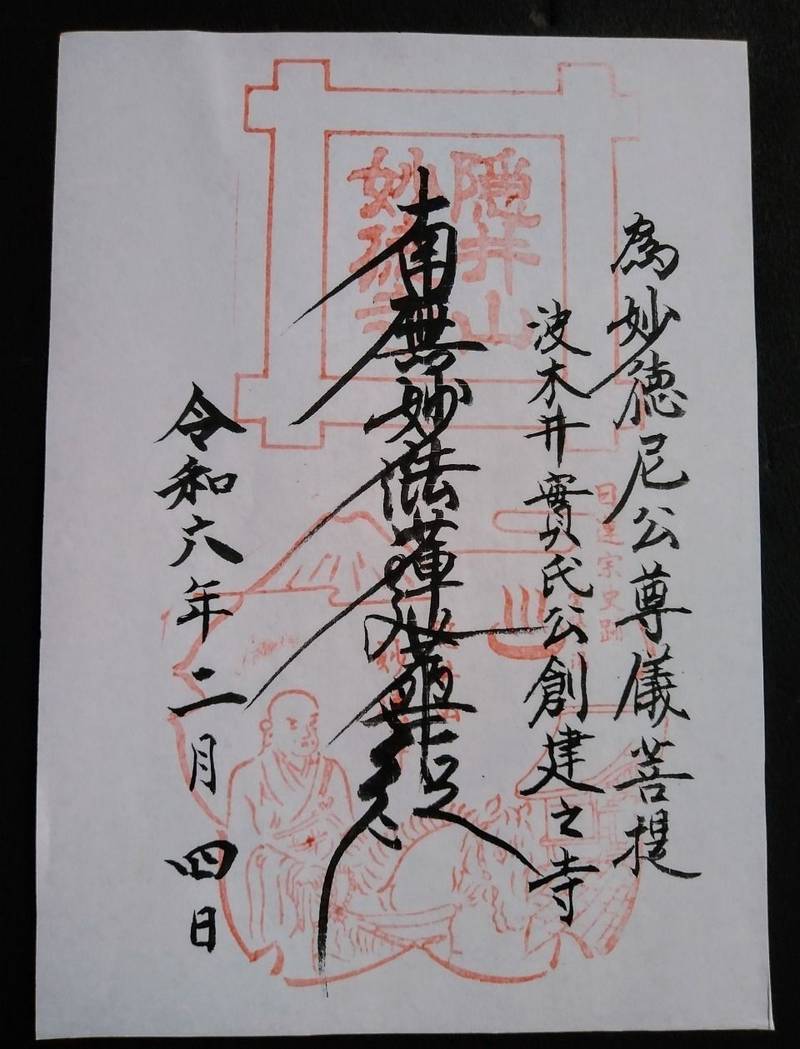 為妙徳尼公尊儀菩提
波木井實氏公創建之寺
南無妙法蓮華経
令和六年二月四日
隠井山
妙寺
日蓮宗史跡